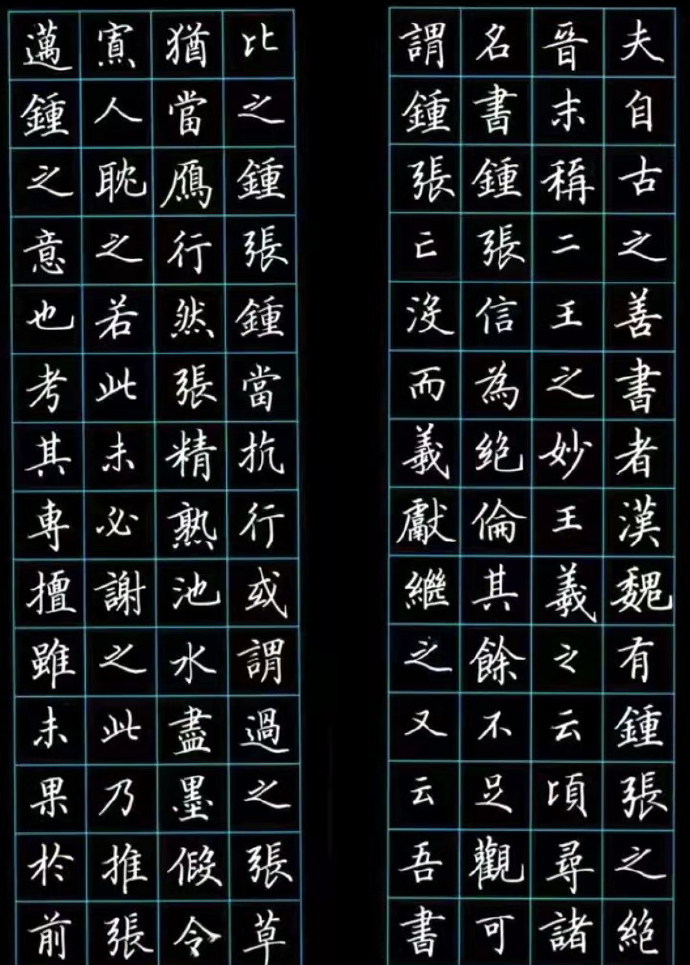 夫自古之善書者漢魏有鍾張之絕
晉末稱二王之妙王羲之云頃尋諸
名書鍾張信為絕倫其餘不足觀可
謂鍾張亡沒而羲獻繼之又云吾書
比之鍾張鍾當抗行或謂過之張草
猶當鴈行然張精熟池水盡墨假令
寡人耽之若此未必謝之此乃推張
邁鍾之意也考其專擅雖未果於前